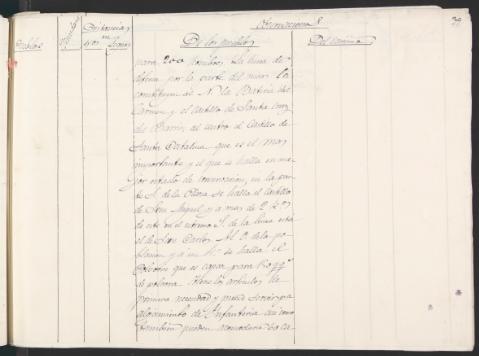 Observaciones
Pueblos
Distancia
en
Leguas
De los pueblos
Del camino
para 200 hombres. La linea de de-
fensa por la parte del mar la
constituyen al N. la Bateria del
Carmen y el Castillo de Santa Cruz
del centro el Castillo de
Santa Catalina que es el mas
importante y el que se halla en me-
jor estado de conservacion, en la par-
te S. de la se halla el Castillo
de San Miguel, y a mas de 2
de este en el estremo S. de la linea esta
el de San Carlos. Al de la po-
blacion y a se halla el
que es capaz para
de polvora. Tiene los articulos de
primera necesidad y puede servir pa
alojamiento de Infanteria asi como
tambien pueden acomodarse 60 ca-